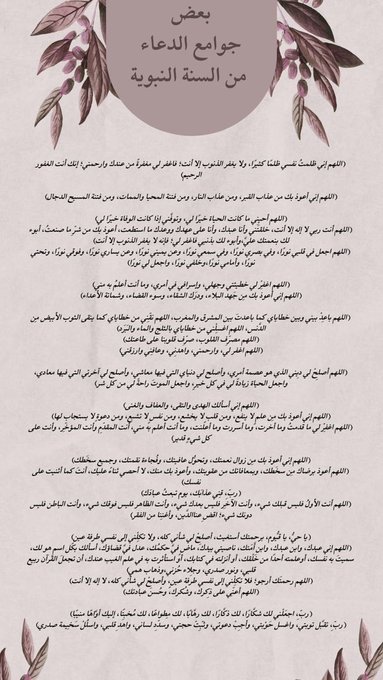 بعض
جوامع الدعاء
من السنة النبوية
(اللهم إني ظلمتُ نفسي ظلمًا كثيرًا، ولا يغفر الذنوب إلا أنت؛ فاغفر لي مغفرةً من عندك وارحمني؛ إنك أنت الغفور
الرحيم)
(اللهم إني أعوذ بك من عذاب القبر، ومن عذاب النار، ومن فتنة المحيا والممات، ومن فتنة المسيح الدجال)
(اللهم أحيني ما كانت الحياة خيرًا لي، وتوفَّني إذا كانت الوفاة خيرًا لي)
(اللهم أنت ربي لا إله إلا أنت، خلقتني وأنا عبدك، وأنا على عهدك ووعدك ما استطعت، أعوذ بك من شرّ ما صنعتُ، أبوء
لك بنعمتك عليَّ، وأبوء لك بذنبي فاغفر لي؛ فإنه لا يغفر الذنوب إلا أنت)
(اللهم اجعل في قلبي نورًا، وفي بصري نورًا، وفي سمعي نورًا، وعن يميني نورًا، وعن يساري نورًا، وفوقي نورًا، وتحتي
نورًا، وأمامي نورًا، وخلفي نورًا، واجعل لي نورًا)
(اللهم اغفر لي خطيئتي وجهلي، وإسرافي في أمري، وما أنت أعلمُ به مني)
(اللهم إني أعوذ بك من جَهد البلاء، ودرَك الشقاء، وسوء القضاء، وشماتة الأعداء)
(اللهم باعِدْ بيني وبين خطاياي كما باعدت بين المشرق والمغرب، اللهم نقّني من خطاياي كما ينقى الثوب الأبيض من
الدنَس، اللهم اغسِلْني من خطاياي بالثلج والماء والبَرَد)
(اللهم مصرّف القلوب، صرّف قلوبنا على طاعتك)
(اللهم اغفر لي، وارحمني، واهدني، وعافِني وارزقني)
(اللهم أصلِحْ لي ديني الذي هو عصمة أمري، وأصلح لي دنياي التي فيها معاشي، وأصلح لي آخرتي التي فيها معادي،
واجعل الحياة زيادة لي في كل خير، واجعل الموت راحةً لي من كل شر)
(اللهم إني أسألك الهدى والتقى، والعفاف والغنى)
(اللهم إني أعوذ بك من علم لا ينفع، ومن قلب لا يخشع، ومن نفس لا تشبع، ومن دعوة لا يستجاب لها)
(اللهم اغفِرْ لي ما قدمتُ وما أخرت، وما أسررت وما أعلنت، وما أنت أعلم به مني، أنت المقدّم وأنت المؤخّر، وأنت على
كل شيء قدير)
(اللهم إني أعوذ بك من زوال نعمتك، وتحوُّل عافيتك، وفُجاءة نقمتك، وجميع سخَطك)
(اللهم أعوذ برضاك من سخطك، وبمعافاتك من عقوبتك، وأعوذ بك منك، لا أحصي ثناءً عليك، أنت كما أثنيت على
نفسك)
(ربّ، قِني عذابَك، يوم تبعثُ عبادَك)
(اللهم أنت الأولُ فليس قبلك شيء، وأنت الآخر فليس بعدك شيء، وأنت الظاهر فليس فوقك شيء، وأنت الباطن فليس
دونك شيء؛ اقضِ عنا الدَّين، وأغنِنا من الفقر)
(يا حيُّ، يا قيُّوم، برحمتك أستغيث، أصلحْ لي شأني كله، ولا تكِلْني إلى نفسي طرفة عين)
(اللهم إني عبدك، وابن عبدك، وابن أمَتك، ناصيتي بيدك، ماضٍ فيَّ حكمُك، عدلٌ فيَّ قضاؤك، أسألك بكل اسم هو لك،
سميتَ به نفسك، أو علمته أحدًا من خلقك، أو أنزلته في كتابك، أو استأثرت به في علم الغيب عندك، أن تجعل القرآن ربيع
قلبي، ونور صدري، وجلاء حُزني، وذهاب همي)
(اللهم رحمتك أرجو؛ فلا تكِلْني إلى نفسي طرفة عين، وأصلِحْ لي شأني كله، لا إله إلا أنت)
(اللهم أعنّي على ذِكرك، وشُكرك، وحُسن عبادتك)
(ربّ، اجعَلْني لك شكّارًا، لك ذكّارًا، لك رهّابًا، لك مطواعًا، لك مُخبتًا، إليك أوّاهًا منيبًا)
(ربّ، تقبّل توبتي، واغسل حَوْبتي، وأجِبْ دعوتي، وثبّتْ حجتي، وسدّد لساني، واهدِ قلبي، واسلُلْ سَخيمة صدري)